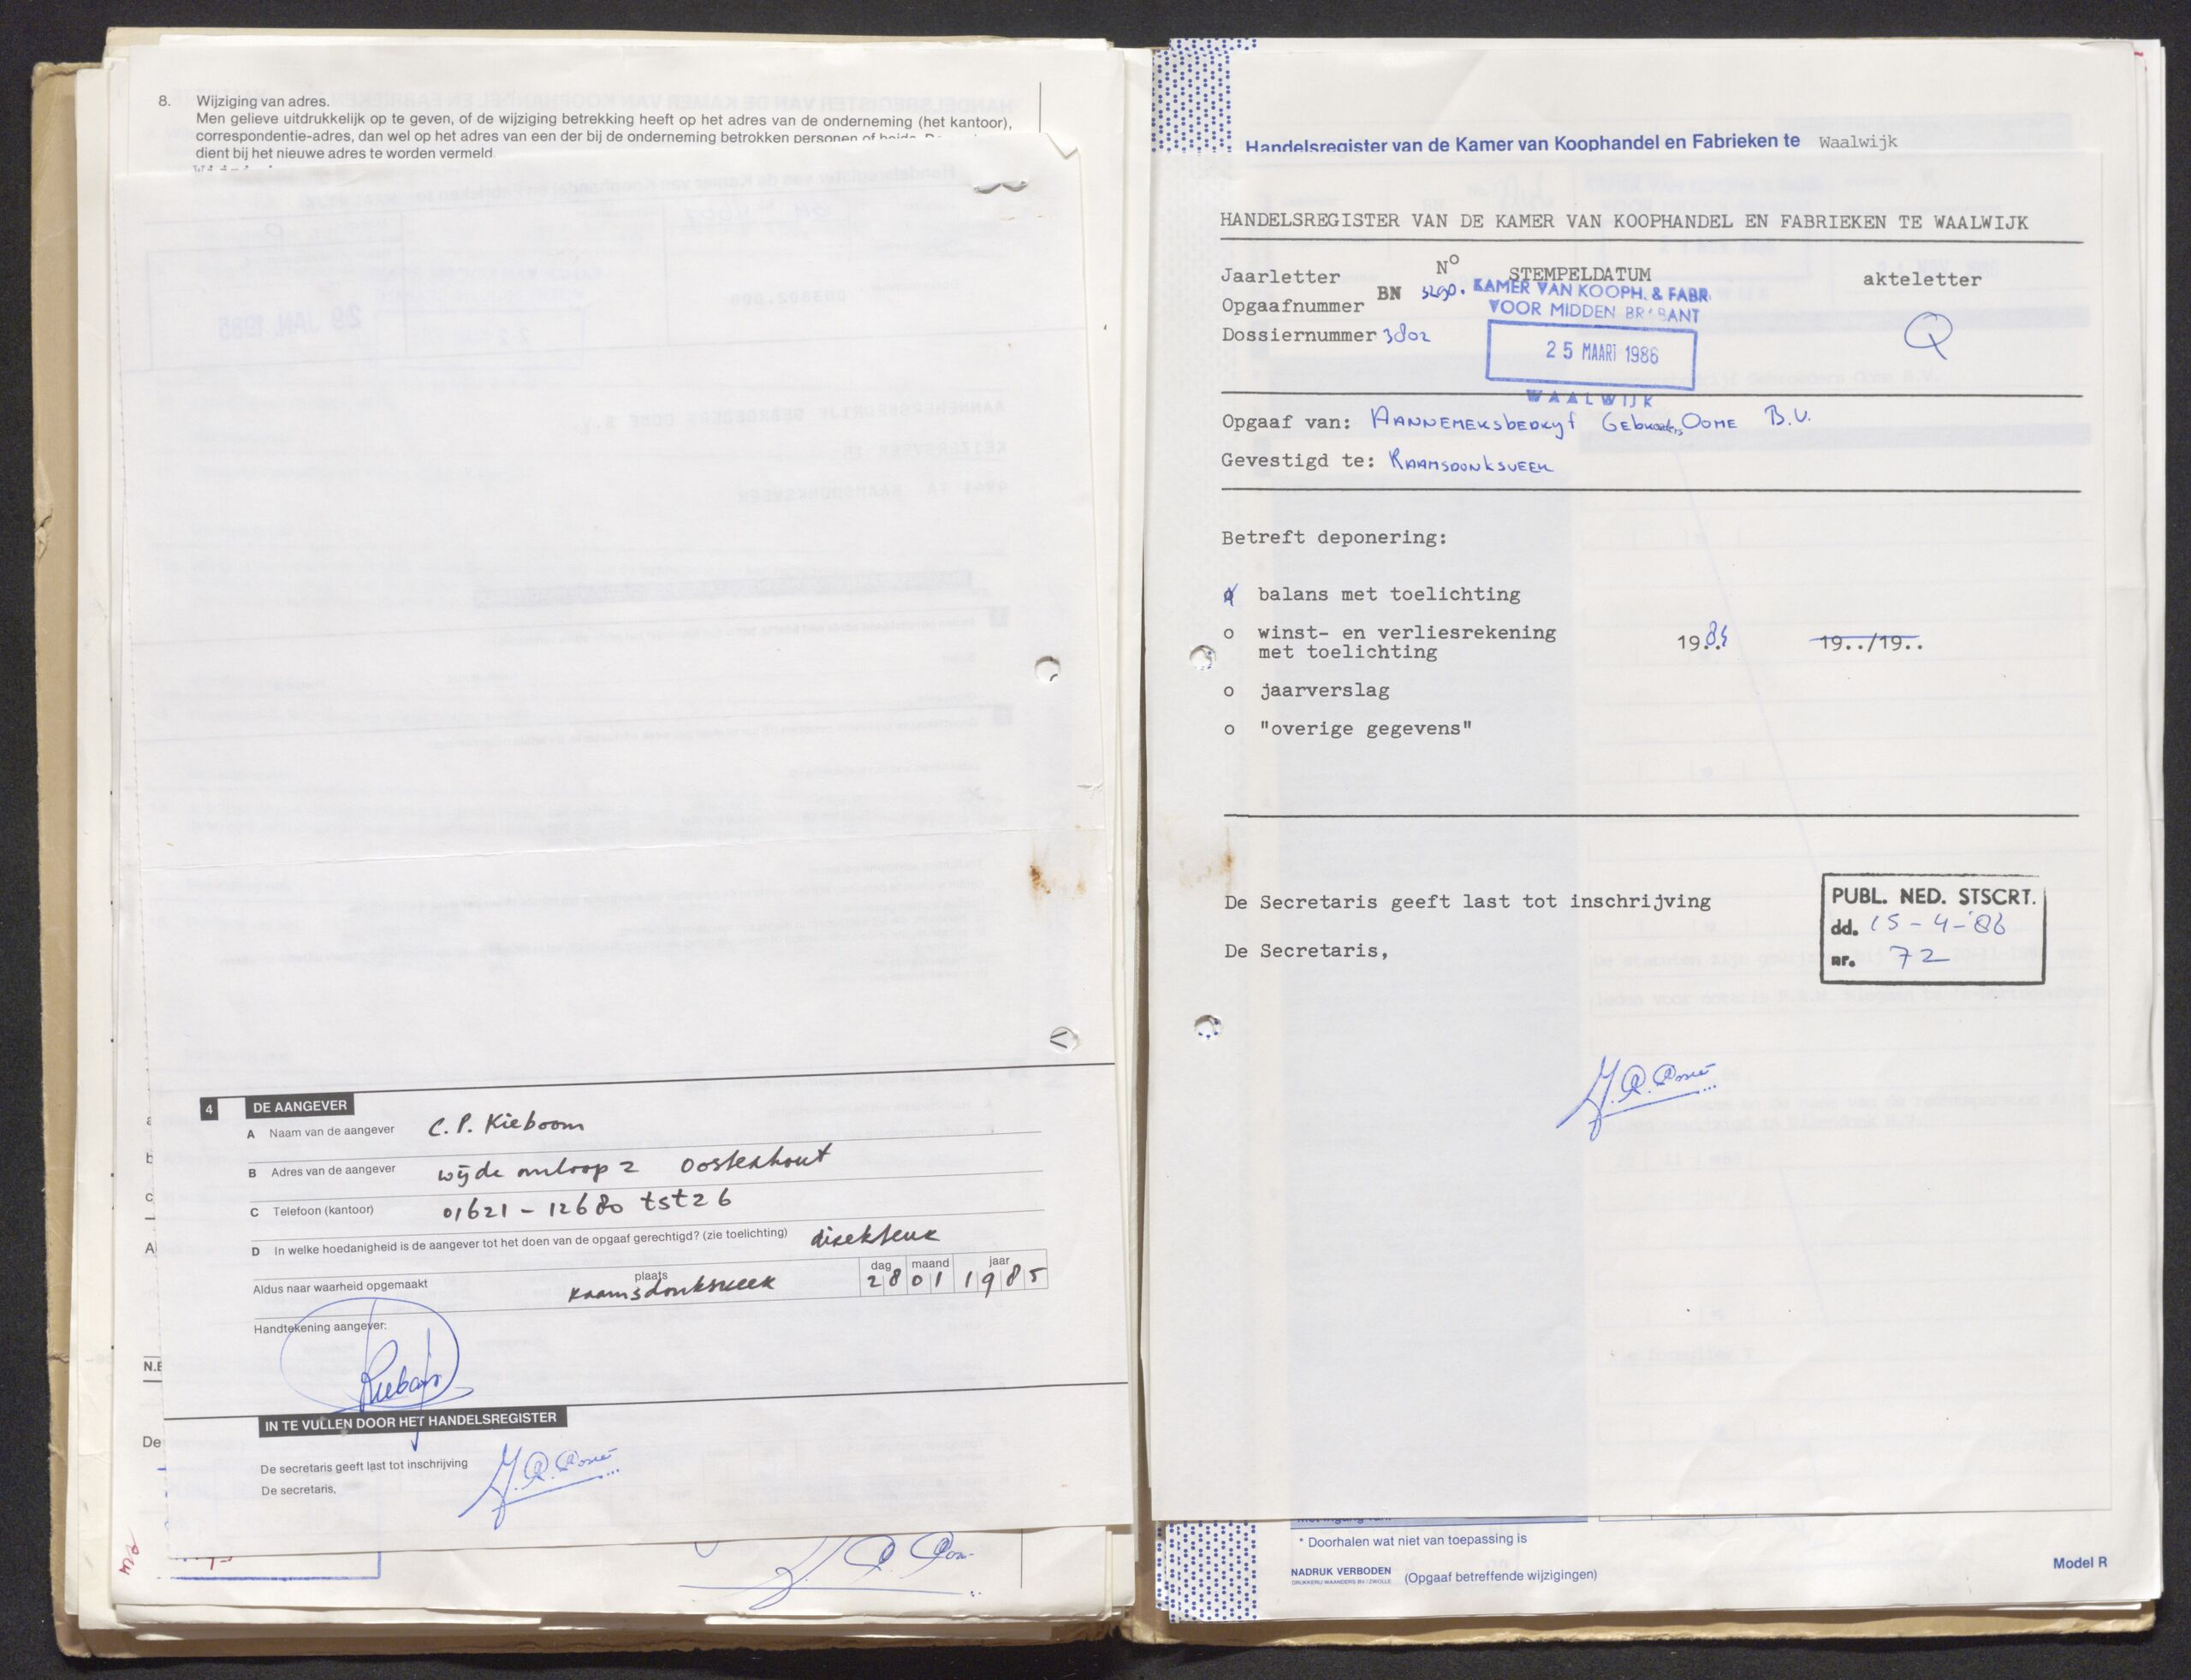 8. Wijziging van adres.
Men gelieve uitdrukkelijk op te geven, of de wijziging betrekking heeft op het adres van de onderneming (het kantoor),
correspondentie-adres, dan wel op het adres van een der bij de onderneming betrokken personen of beide.
dient bij het nieuwe adres te worden vermeld.
4 DE AANGEVER
A Naam van de aangever C. P. Kieboom
B Adres van de aangever wijde omloop 2 Oosterhout
C Telefoon (kantoor) 01621 - 12680 tst 26
D In welke hoedanigheid is de aangever tot het doen van de opgaaf gerechtigd? (zie toelichting) direkteur
Aldus naar waarheid opgemaakt plaats Raamsdonksveer dag 28 maand 01 jaar 1985
Handtekening aangever:
IN TE VULLEN DOOR HET HANDELSREGISTER
De secretaris geeft last tot inschrijving
De secretaris,
Handelsregister van de Kamer van Koophandel en Fabrieken te Waalwijk
HANDELSREGISTER VAN DE KAMER VAN KOOPHANDEL EN FABRIEKEN TE WAALWIJK
Jaarletter No STEMPELDATUM akteletter
BN KAMER VAN KOOPH. & FABR.
Opgaafnummer VOOR MIDDEN BRABANT
Dossiernummer 3802 25 MAART 1986 Q
WAALWIJK
Opgaaf van: AANNEMERSBEDRYF GEBroeders OOME B.V.
Gevestigd te: RAAMSDONKSVEER
Betreft deponering:
balans met toelichting
o winst- en verliesrekening
met toelichting 1984 19../19..
o jaarverslag
o "overige gegevens"
De Secretaris geeft last tot inschrijving
De Secretaris,
PUBL. NED. STSCRT.
dd. 15-4-'86
nr. 72
* Doorhalen wat niet van toepassing is
NADRUK VERBODEN
DRUKKERIJ WAANDERS BV / ZWOLLE
(Opgaaf betreffende wijzigingen)
Model R